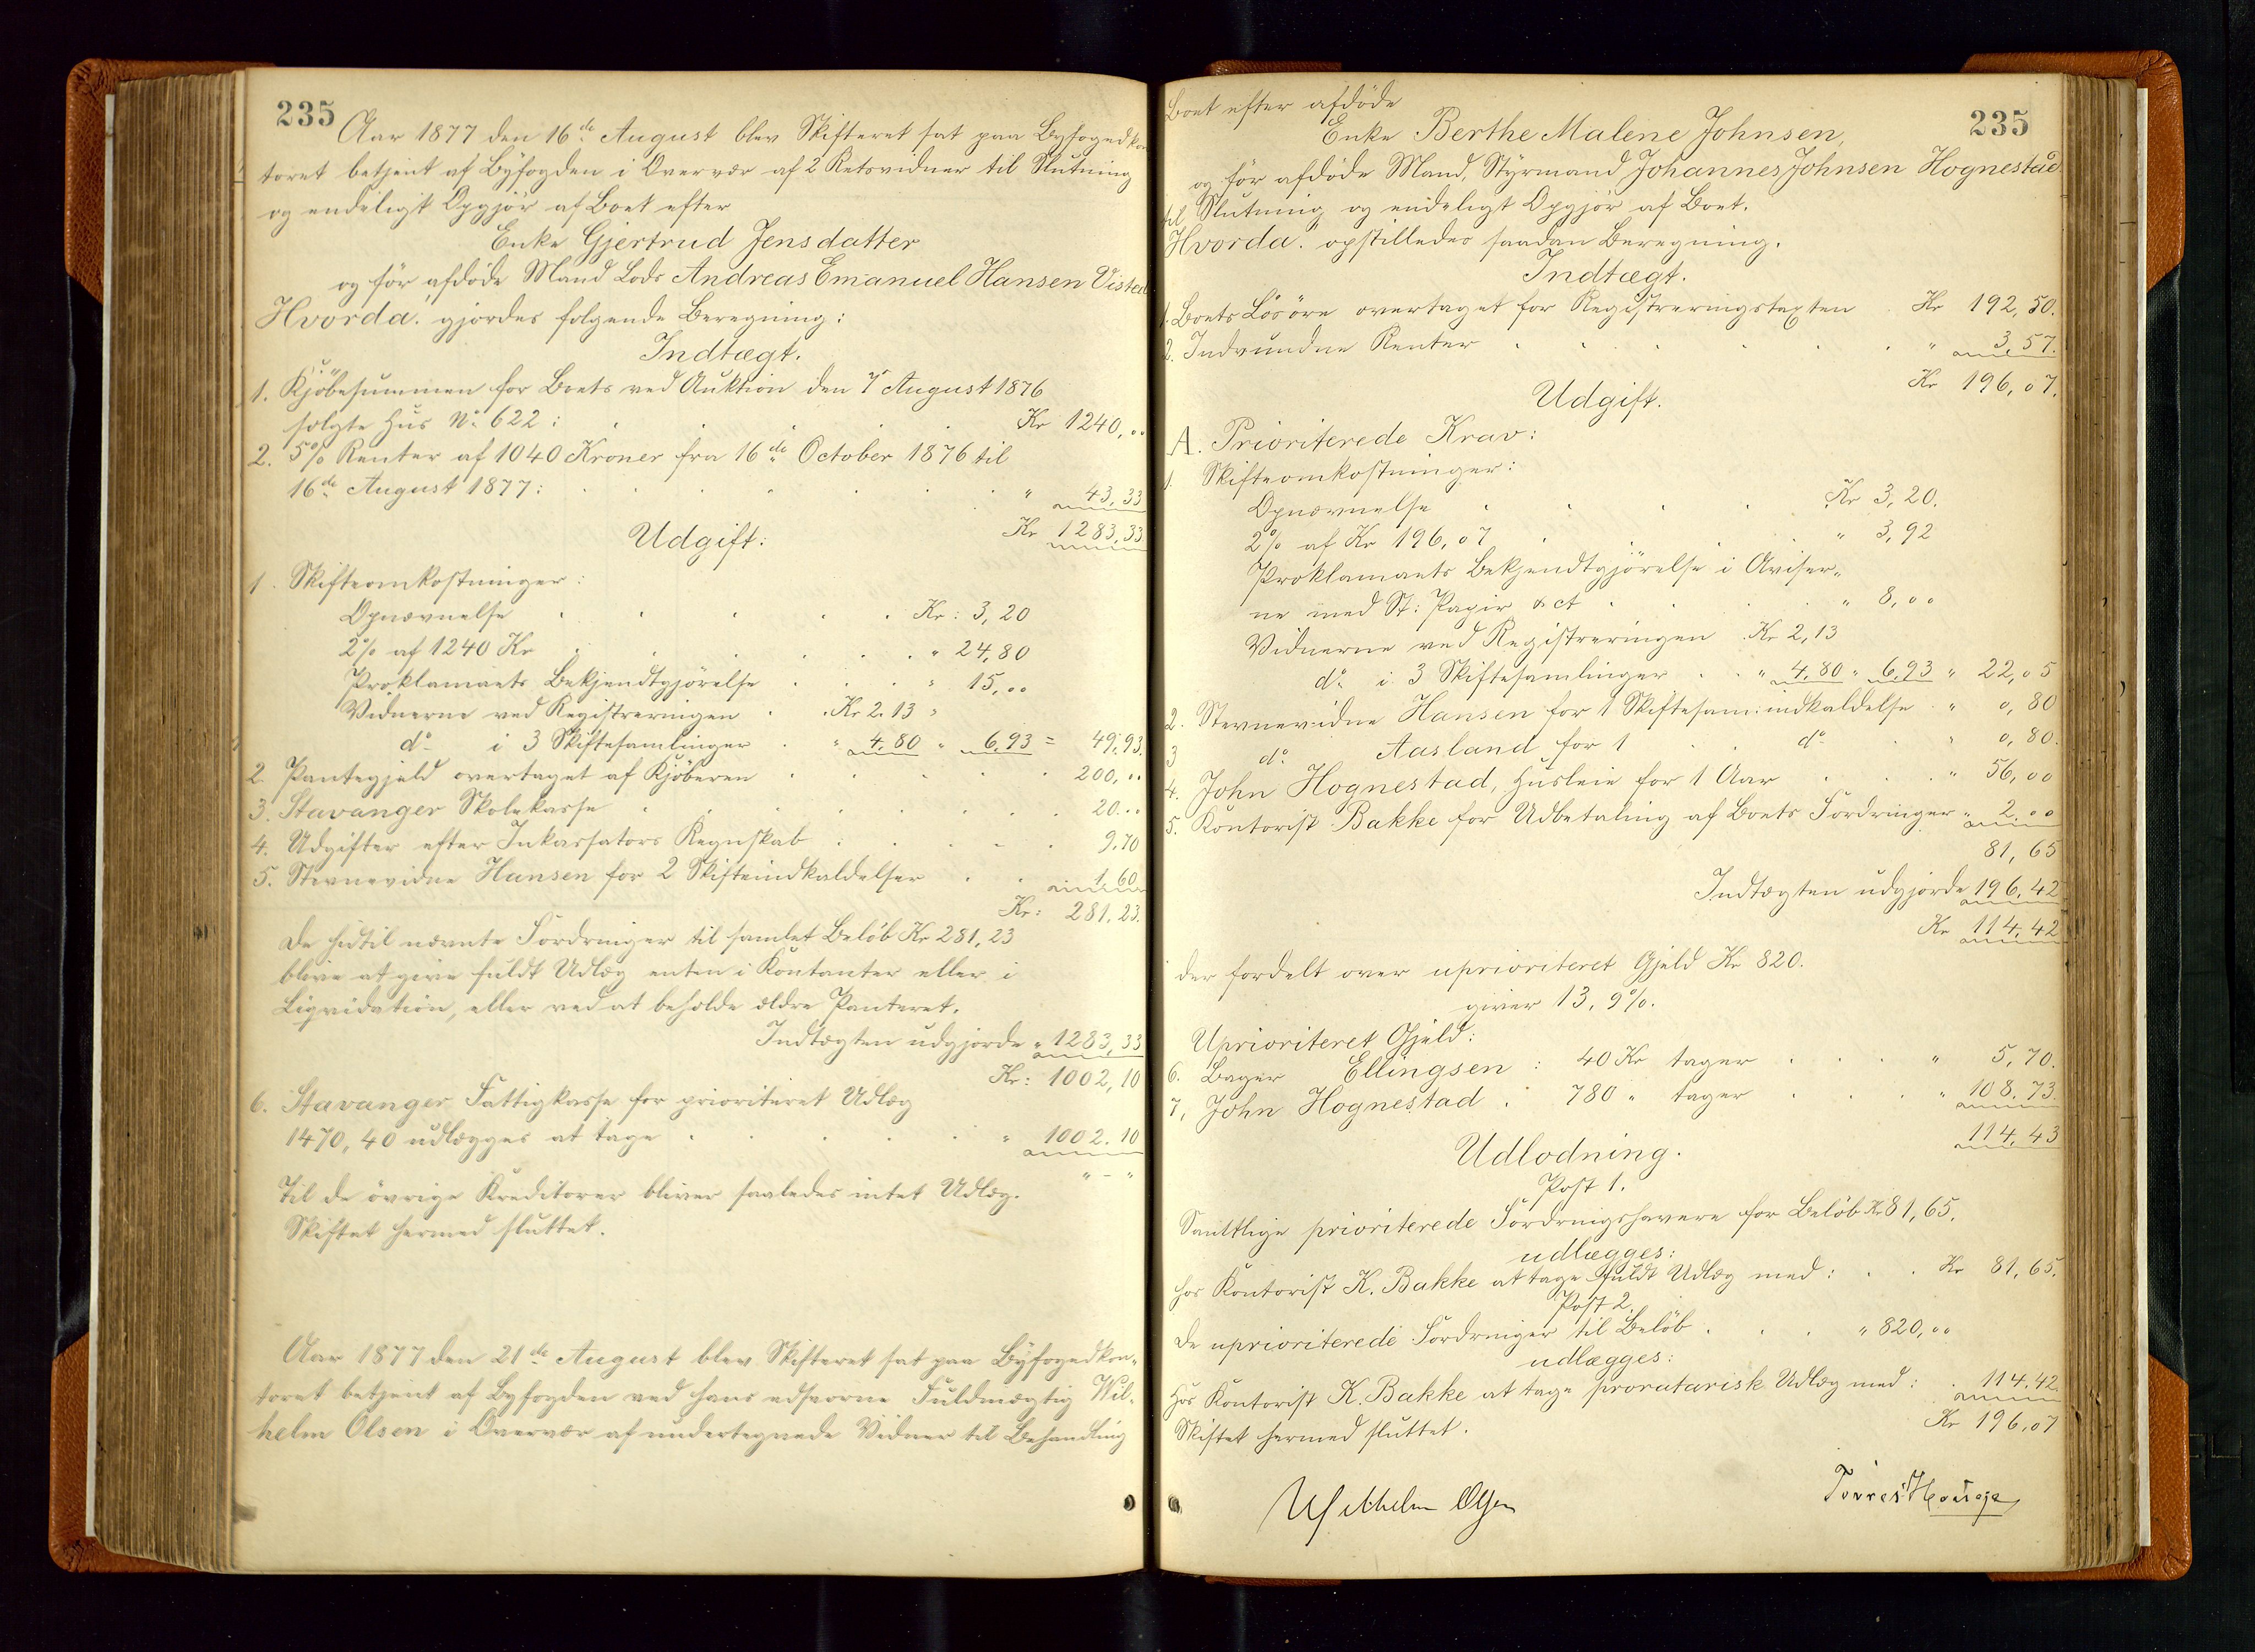 235
Aar 1877 den 16de August blev Skifteret sat paa Byfogedkon
toret betjent af Byfogden i Overvær af 2 Retsvidner til Slutning
og endeligt Opgjör af Boet efter
Enke Gjertrud Jensdatter
og för afdöde Mand Lods Andreas Emanuel Hansen Visted
Hvorda: gjordes folgende Beregning:
Indtægt.
1. Kjöbesummen for Boets ved Auktion den 7 August 1876
solgte Hus No 622: Kr 1240,00
2. 5% Renter af 1040 Kroner fra 16de October 1876 til
16de August 1877: " 43,33
Kr 1283,33
Udgift:
1. Skifteomkostninger:
Opnævnelse Kr: 3,20
2% af 1240 Kr " 24,80
Proklamaets Bekjendtgjörelse " 15,00
Vidnerne ved Registreringen Kr 2.13 "
do i 3 Skiftesamlinger " 4.80 " 6,93 = 49,93.
2. Pantegjeld overtaget af Kjöberen 200,00
3. Stavanger Skolekasse 20.00
4. Udgifter efter Inkassators Regnskab 9.70
5. Stevnevidne Hansen for 2 Skifteindkaldelser 1,60
Kr: 281,23.
De hidtil nævnte Fordringer til samlet Belöb Kr 281,23
blive at give fuldt Udlæg enten i Kontanter eller i
Liqvidation, eller ved at beholde ældre Panteret.
Indtægten udgjorde " 1283,33
Kr: 1002,10
6. Stavanger Fattigkasse for prioriteret Udlæg
1470,40 udlægges at tage " 1002.10
" - "
Til de övrige Kreditorer bliver saaledes intet Udlæg.
Skiftet hermed sluttet.
Aar 1877 den 21de August blev Skifteret sat paa Byfogedkon-
toret betjent af Byfogden ved hans edsvorne Fuldmægtig Wil-
helm Olsen i Overvær af undertegnede Vidner til Behandling
235
Boet efter afdöde
Enke Berthe Malene Johnsen,
og för afdöde Mand, Styrmand Johannes Johnsen Hognestad
til Slutning og endeligt Opgjör af Boet.
Hvorda: opstilledes saadan Beregning.
Indtægt.
1. Boets Lösöre overtaget for Registreringstaxten Kr 192,50.
2. Indvundne Renter " 3,57.
Kr 196,07.
Udgift.
A. Prioriterede Krav:
1. Skifteomkostninger:
Opnævnelse Kr 3,20.
2% af Kr 196,07 " 3,92
Proklamaets Bekjendtgjörelse i Aviser-
ne med St: Papir &ct " 8,00
Vidnerne ved Registreringen Kr 2,13
do i 3 Skiftesamlinger " 4,80 " 6,93 " 22,05
2. Stevnevidne Hansen for 1 Skiftesam:indkaldelse " 0,80
3 do Aasland for 1 do " 0,80.
4. John Hognestad, Husleie for 1 Aar " 56,00
5. Kontorist Bakke for Udbetaling af Boets Fordringer " 2.00
81,65
Indtægten udgjorde 196.42
Kr 114.42
der fordelt over uprioriteret Gjeld Kr 820.
giver 13,9%.
Uprioriteret Gjeld:
6. Bager Ellingsen: 40 Kr tager " 5,70.
7, John Hognestad. 780 " tager " 108.73.
114,43
Udlodning.
Post 1.
Samtlige prioriterede Fordringshavere for Belöb Kr 81,65.
udlægges:
hos Kontorist K. Bakke at tage fuldt Udlæg med: Kr 81,65.
Post 2.
De uprioriterede Fordringer til Belöb " 820,00
udlægges:
Hos Kontorist K. Bakke at tage proratarisk Udlæg med: 114.42
Kr 196,07
Skiftet hermed sluttet.
Wilhelm Olsen